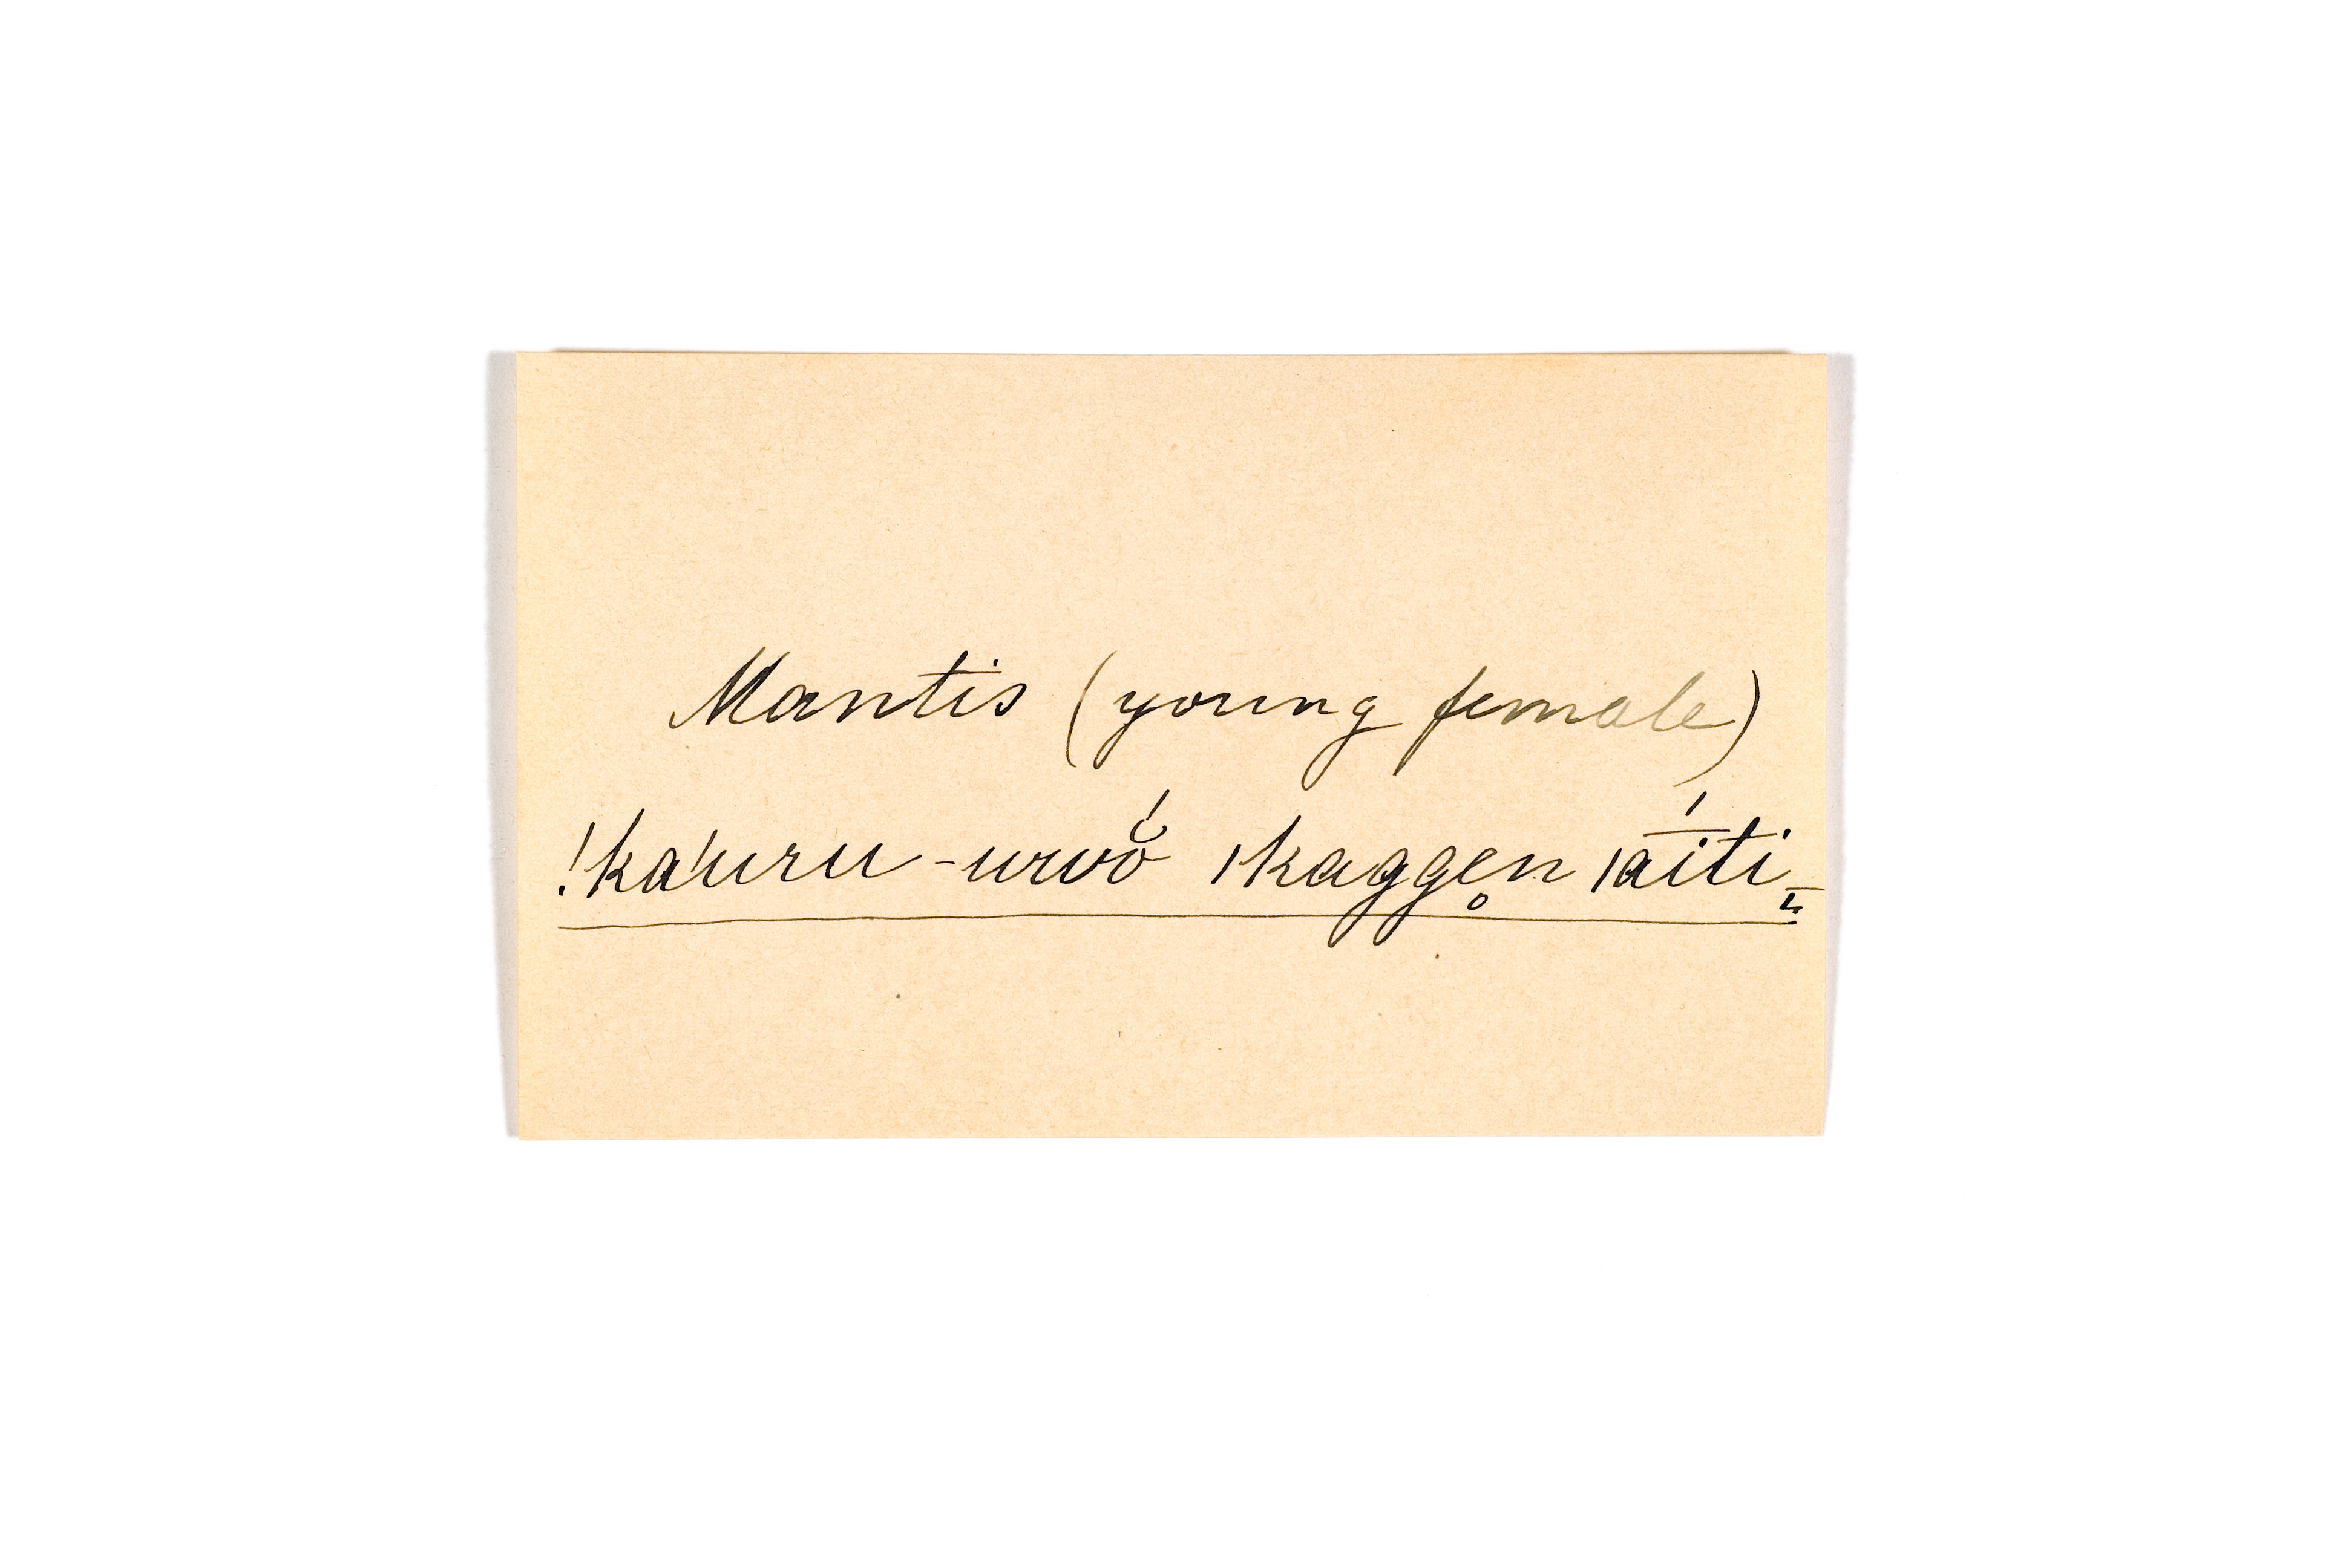 Mantis (young female)
!ka'uru-urwŏ́ ǀkaggen̥ ǀāíti͟.